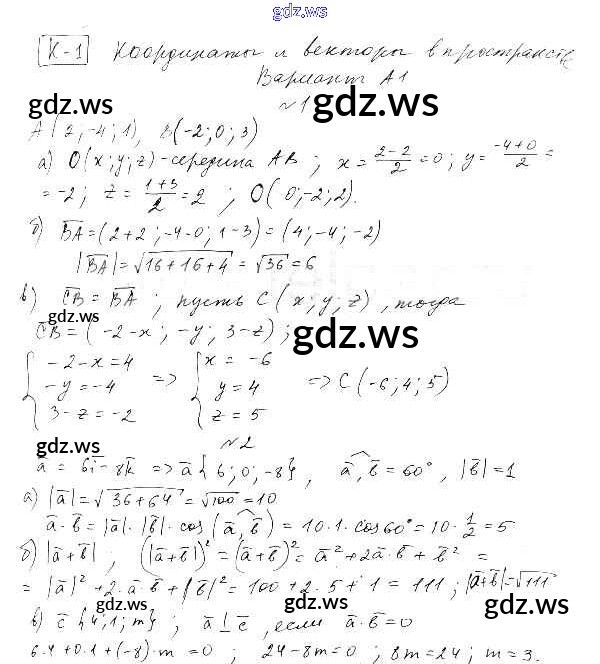 gdz.ws
К-1 Координаты и векторы в пространстве
Вариант А1
gdz.ws
№1
gdz.ws
A(2,-4;1), B(-2;0;3)
а) O(x;y;z)-середина AB; x = (2-2)/2 = 0; y = (-4+0)/2 =
= -2; z = (1+3)/2 = 2; O(0;-2;2).
gdz.ws
б) B̅A̅ = (2+2; -4-0; 1-3) = (4;-4;-2)
|B̅A̅| = √(16+16+4) = √36 = 6
в) C̅B̅ = B̅A̅; пусть C(x;y;z), тогда
gdz.ws
C̅B̅ = (-2-x; -y; 3-z);
gdz.ws
{ -2-x = 4 { x = -6
-y = -4 => y = 4 => C(-6;4;5)
3-z = -2 z = 5
№2
gdz.ws
a̅ = 6i̅ - 8k̅ => a̅{6;0;-8}, a̅,b̅ = 60°, |b̅| = 1
а) |a̅| = √(36+64) = √100 = 10
a̅·b̅ = |a̅|·|b̅|·cos(a̅,b̅) = 10·1·cos60° = 10·1/2 = 5
gdz.ws
б) |a̅+b̅|; (|a̅+b̅|)² = (a̅+b̅)² = a̅² + 2a̅·b̅ + b̅² =
= |a̅|² + 2·a̅·b̅ + |b̅|² = 100 + 2·5 + 1 = 111; |a̅+b̅| = √111
gdz.ws
gdz.ws
в) c̅{4;1;m}; a̅⊥c̅, если a̅·b̅ = 0
6·4+0·1+(-8)·m = 0; 24-8m = 0; 8m = 24; m = 3.